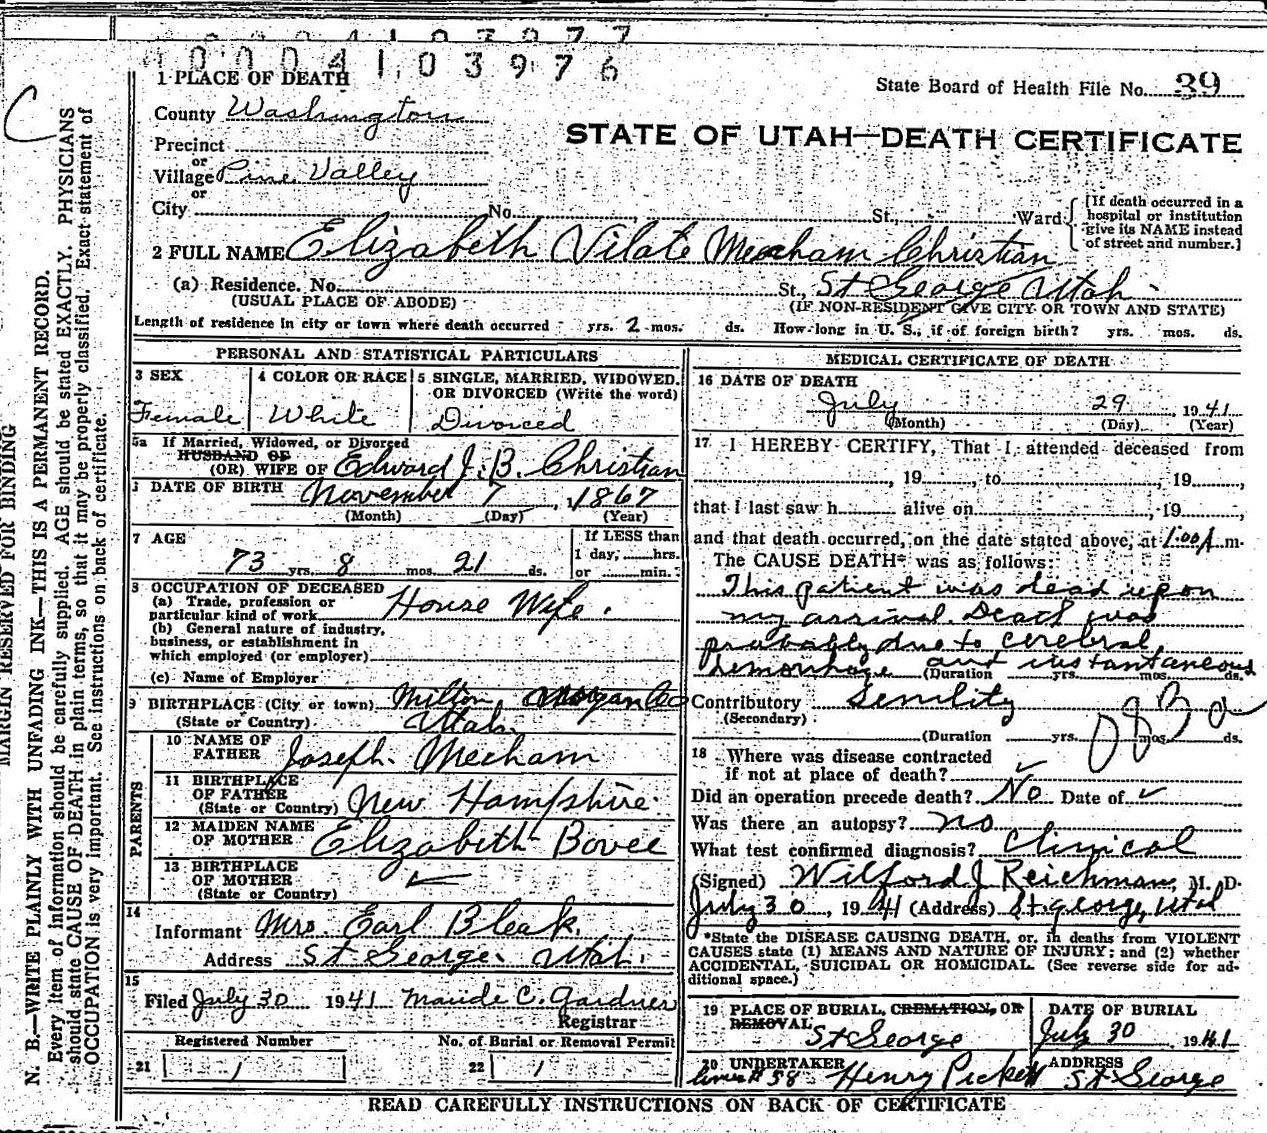 0004103977
0004103976
C
MARGIN RESERVED FOR BINDING
N. B.—WRITE PLAINLY WITH UNFADING INK—THIS IS A PERMANENT RECORD.
Every item of information should be carefully supplied. AGE should be stated EXACTLY. PHYSICIANS
should state CAUSE OF DEATH in plain terms, so that it may be properly classified. Exact statement of
OCCUPATION is very important. See instructions on back of certificate.
State Board of Health File No. 39
STATE OF UTAH—DEATH CERTIFICATE
1 PLACE OF DEATH
County Washington
Precinct
or
Village Pine Valley
or
City No. St., Ward
[If death occurred in a
hospital or institution
give its NAME instead
of street and number.]
2 FULL NAME Elizabeth Vilate Mecham Christian
(a) Residence. No. St., St George Utah.
(USUAL PLACE OF ABODE) (IF NON-RESIDENT GIVE CITY OR TOWN AND STATE)
Length of residence in city or town where death occurred yrs. 2 mos. ds. How long in U. S., if of foreign birth? yrs. mos. ds.
PERSONAL AND STATISTICAL PARTICULARS
3 SEX 4 COLOR OR RACE 5 SINGLE, MARRIED, WIDOWED,
OR DIVORCED (Write the word)
Female White Divorced
5a If Married, Widowed, or Divorced
HUSBAND OF
(OR) WIFE OF Edward J. B. Christian
DATE OF BIRTH November 7, 1867
(Month) (Day) (Year)
7 AGE If LESS than
1 day, hrs.
73 yrs. 8 mos. 21 ds. or min.
8 OCCUPATION OF DECEASED
(a) Trade, profession or
particular kind of work House Wife.
(b) General nature of industry,
business, or establishment in
which employed (or employer)
(c) Name of Employer
9 BIRTHPLACE (City or town) Milton Morgan Co
(State or Country) Utah.
PARENTS
10 NAME OF
FATHER Joseph Mecham
11 BIRTHPLACE
OF FATHER
(State or Country) New Hampshire.
12 MAIDEN NAME
OF MOTHER Elizabeth Bovee
13 BIRTHPLACE
OF MOTHER
(State or Country)
14
Informant Mrs. Earl Bleak.
Address St George Utah.
15
Filed July 30 1941 Maude C. Gardner
Registrar
Registered Number No. of Burial or Removal Permit
21 1 22 1
MEDICAL CERTIFICATE OF DEATH
16 DATE OF DEATH
July 29 1941
(Month) (Day) (Year)
17 I HEREBY CERTIFY, That I attended deceased from
, 19 , to , 19 ,
that I last saw h alive on , 19 ,
and that death occurred, on the date stated above, at 1:00 A m.
The CAUSE DEATH* was as follows:
This patient was dead upon
my arrival. Death was
probably due to cerebral
hemorrhage and instantaneous
(Duration yrs. mos. ds.
Contributory Senility
(Secondary)
(Duration yrs. mos. ds.
18 Where was disease contracted
if not at place of death?
Did an operation precede death? No Date of
Was there an autopsy? no
What test confirmed diagnosis? Clinical
(Signed) Wilford J Reichman, M. D.
July 30, 1941 (Address) St. George, Utah
*State the DISEASE CAUSING DEATH, or, in deaths from VIOLENT
CAUSES state (1) MEANS AND NATURE OF INJURY; and (2) whether
ACCIDENTAL, SUICIDAL OR HOMICIDAL. (See reverse side for ad-
ditional space.)
19 PLACE OF BURIAL, CREMATION, OR
REMOVAL St George
DATE OF BURIAL
July 30, 1941
20 UNDERTAKER Henry Pickett
# 58
ADDRESS
St George
READ CAREFULLY INSTRUCTIONS ON BACK OF CERTIFICATE